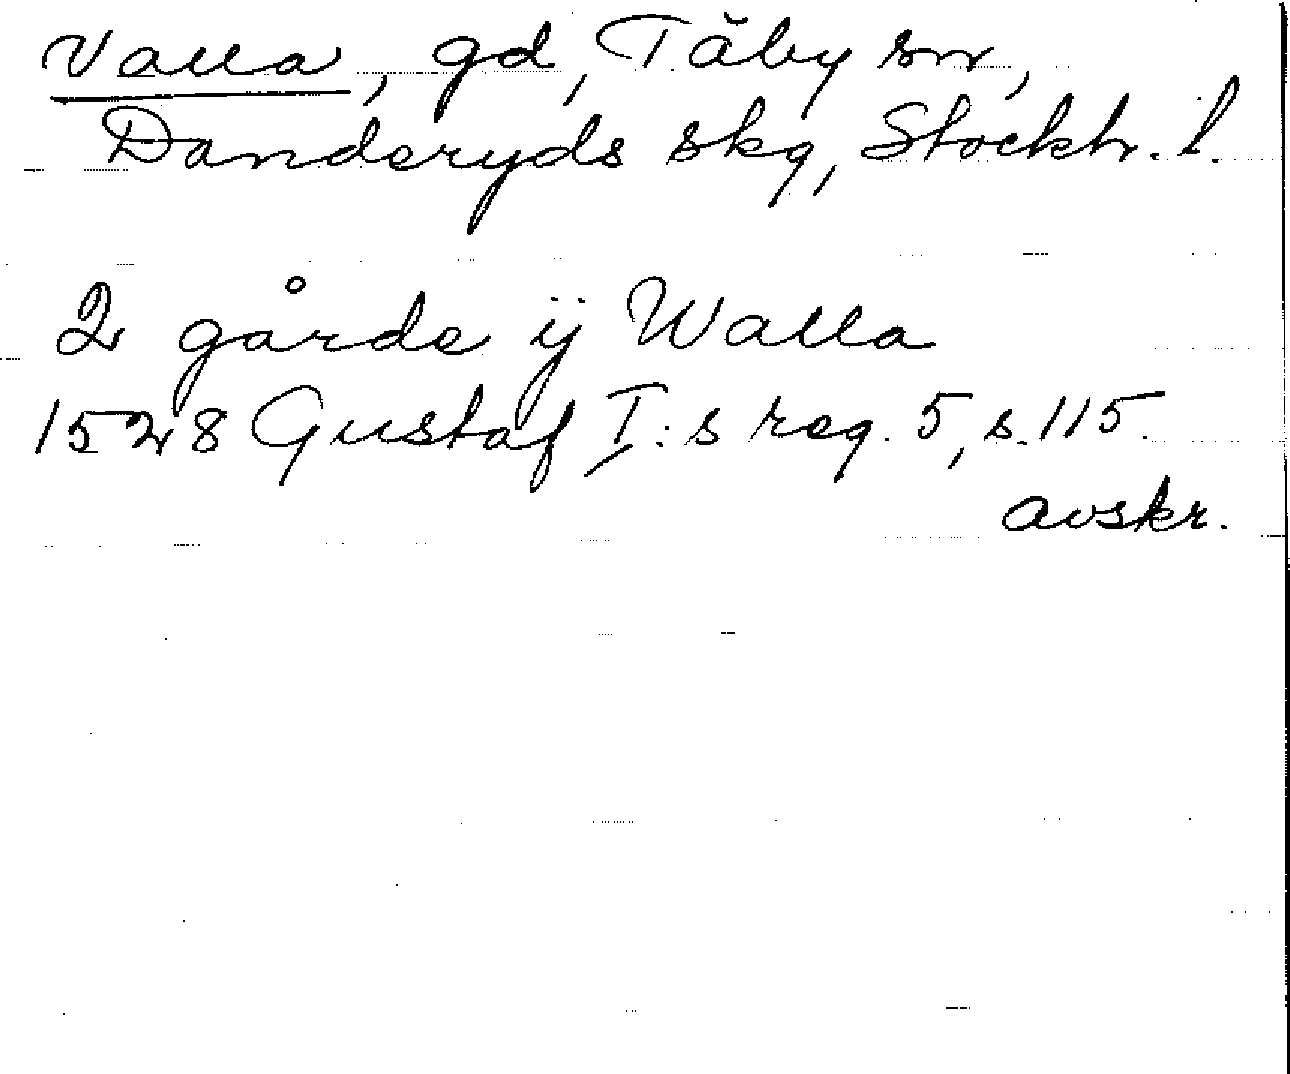 Valla, gd, Täby sn,
Danderyds skg, Stockh. l.
2 gårde ij Walla
1528 Gustaf I:s reg. 5, s. 115.
avskr.